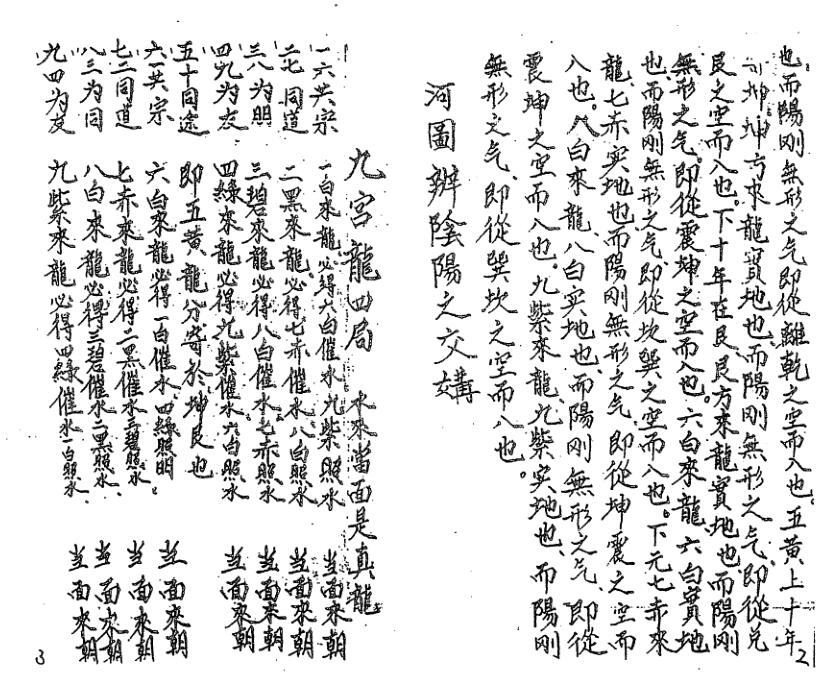 也、而陽刚無形之气、即從離乾之空而入也。五黄上十年
坤坤方來龍實地也、而陽刚無形之气、即從兑
艮之空而入也。下十年在艮艮方來龍實地也而陽刚
無形之气、即從震坤之空而入也。六白來龍、六白實地
也、而陽刚無形之气、即從坎巽之空而入也。下元七赤來
龍、七赤实地也、而陽刚無形之气、即從坤震之空而
入也。八白來龍、八白实地也、而陽刚無形之气、即從
震坤之空而入也。九紫來龍、九紫实地也、而陽刚
無形之气、即從巽坎之空而入也。
河圖辨陰陽之交媾
2
九宫龍四局 水來當面是真龍
一六共宗 一白來龍必得六白催水九紫照水 当面來朝
二七同道 二黑來龍必得七赤催水八白照水 当面來朝
三八为朋 三碧來龍必得八白催水七赤照水 当面來朝
四九为友 四綠來龍必得九紫催水六白照水 当面來朝
五十同途 即五黄龍分寄於坤艮也
六一共宗 六白來龍必得一白催水四綠照明。 当面來朝
七二同道 七赤來龍必得二黑催水三碧照水 当面來朝
八三为同 八白來龍必得三碧催水二黑照水、 当面來朝
九四为友 九紫來龍必得四綠催水一白照水、 当面來朝
3